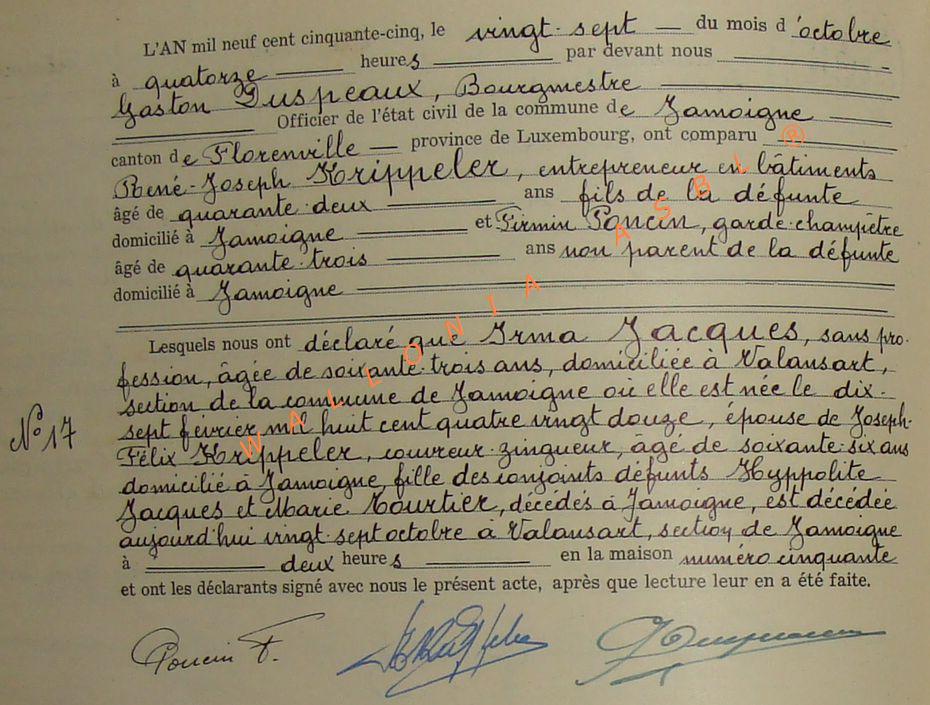 L'AN mil neuf cent cinquante-cinq, le vingt-sept du mois d'octobre
à quatorze heures par devant nous
Gaston Duspeaux, Bourgmestre
Officier de l'état civil de la commune de Jamoigne
canton de Florenville province de Luxembourg, ont comparu
René-Joseph Krippeler, entrepreneur en bâtiments
âgé de quarante-deux ans fils de la défunte
domicilié à Jamoigne et Firmin Poncin, garde-champêtre
âgé de quarante-trois ans non parent de la défunte
domicilié à Jamoigne
Lesquels nous ont déclaré que Irma Jacques, sans pro-
fession, âgée de soixante-trois ans, domiciliée à Valansart,
section de la commune de Jamoigne où elle est née le dix-
sept février mil huit cent quatre vingt douze, épouse de Joseph-
N° 17
Félix Krippeler, couvreur-zingueur, âgé de soixante-six ans
domicilié à Jamoigne, fille des conjoints défunts Hyppolite
Jacques et Marie Tourtier, décédés à Jamoigne, est décédée
aujourd'hui vingt-sept octobre à Valansart, section de Jamoigne
à deux heures en la maison numéro cinquante
et ont les déclarants signé avec nous le présent acte, après que lecture leur en a été faite.
Poncin F.
WALLONIA ASBL ®